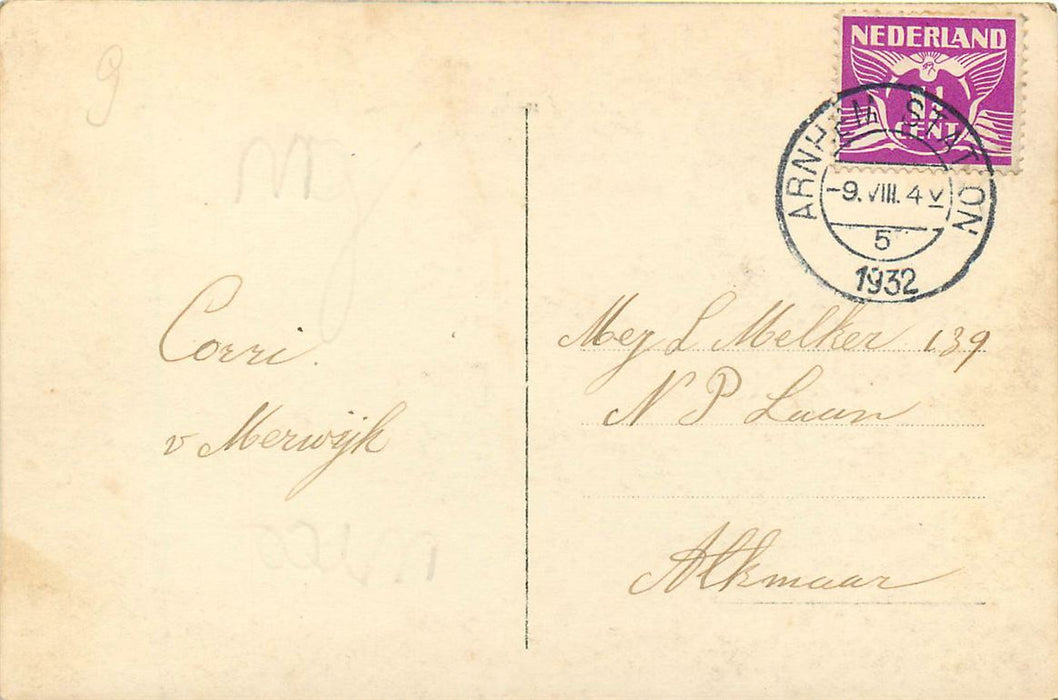 9
NEDERLAND
CENT
ARNHEM STATION
-9.VIII. 4 V
5
1932
Corri.
v Merwijk
Mej L Melker 139
N P Laan
Alkmaar